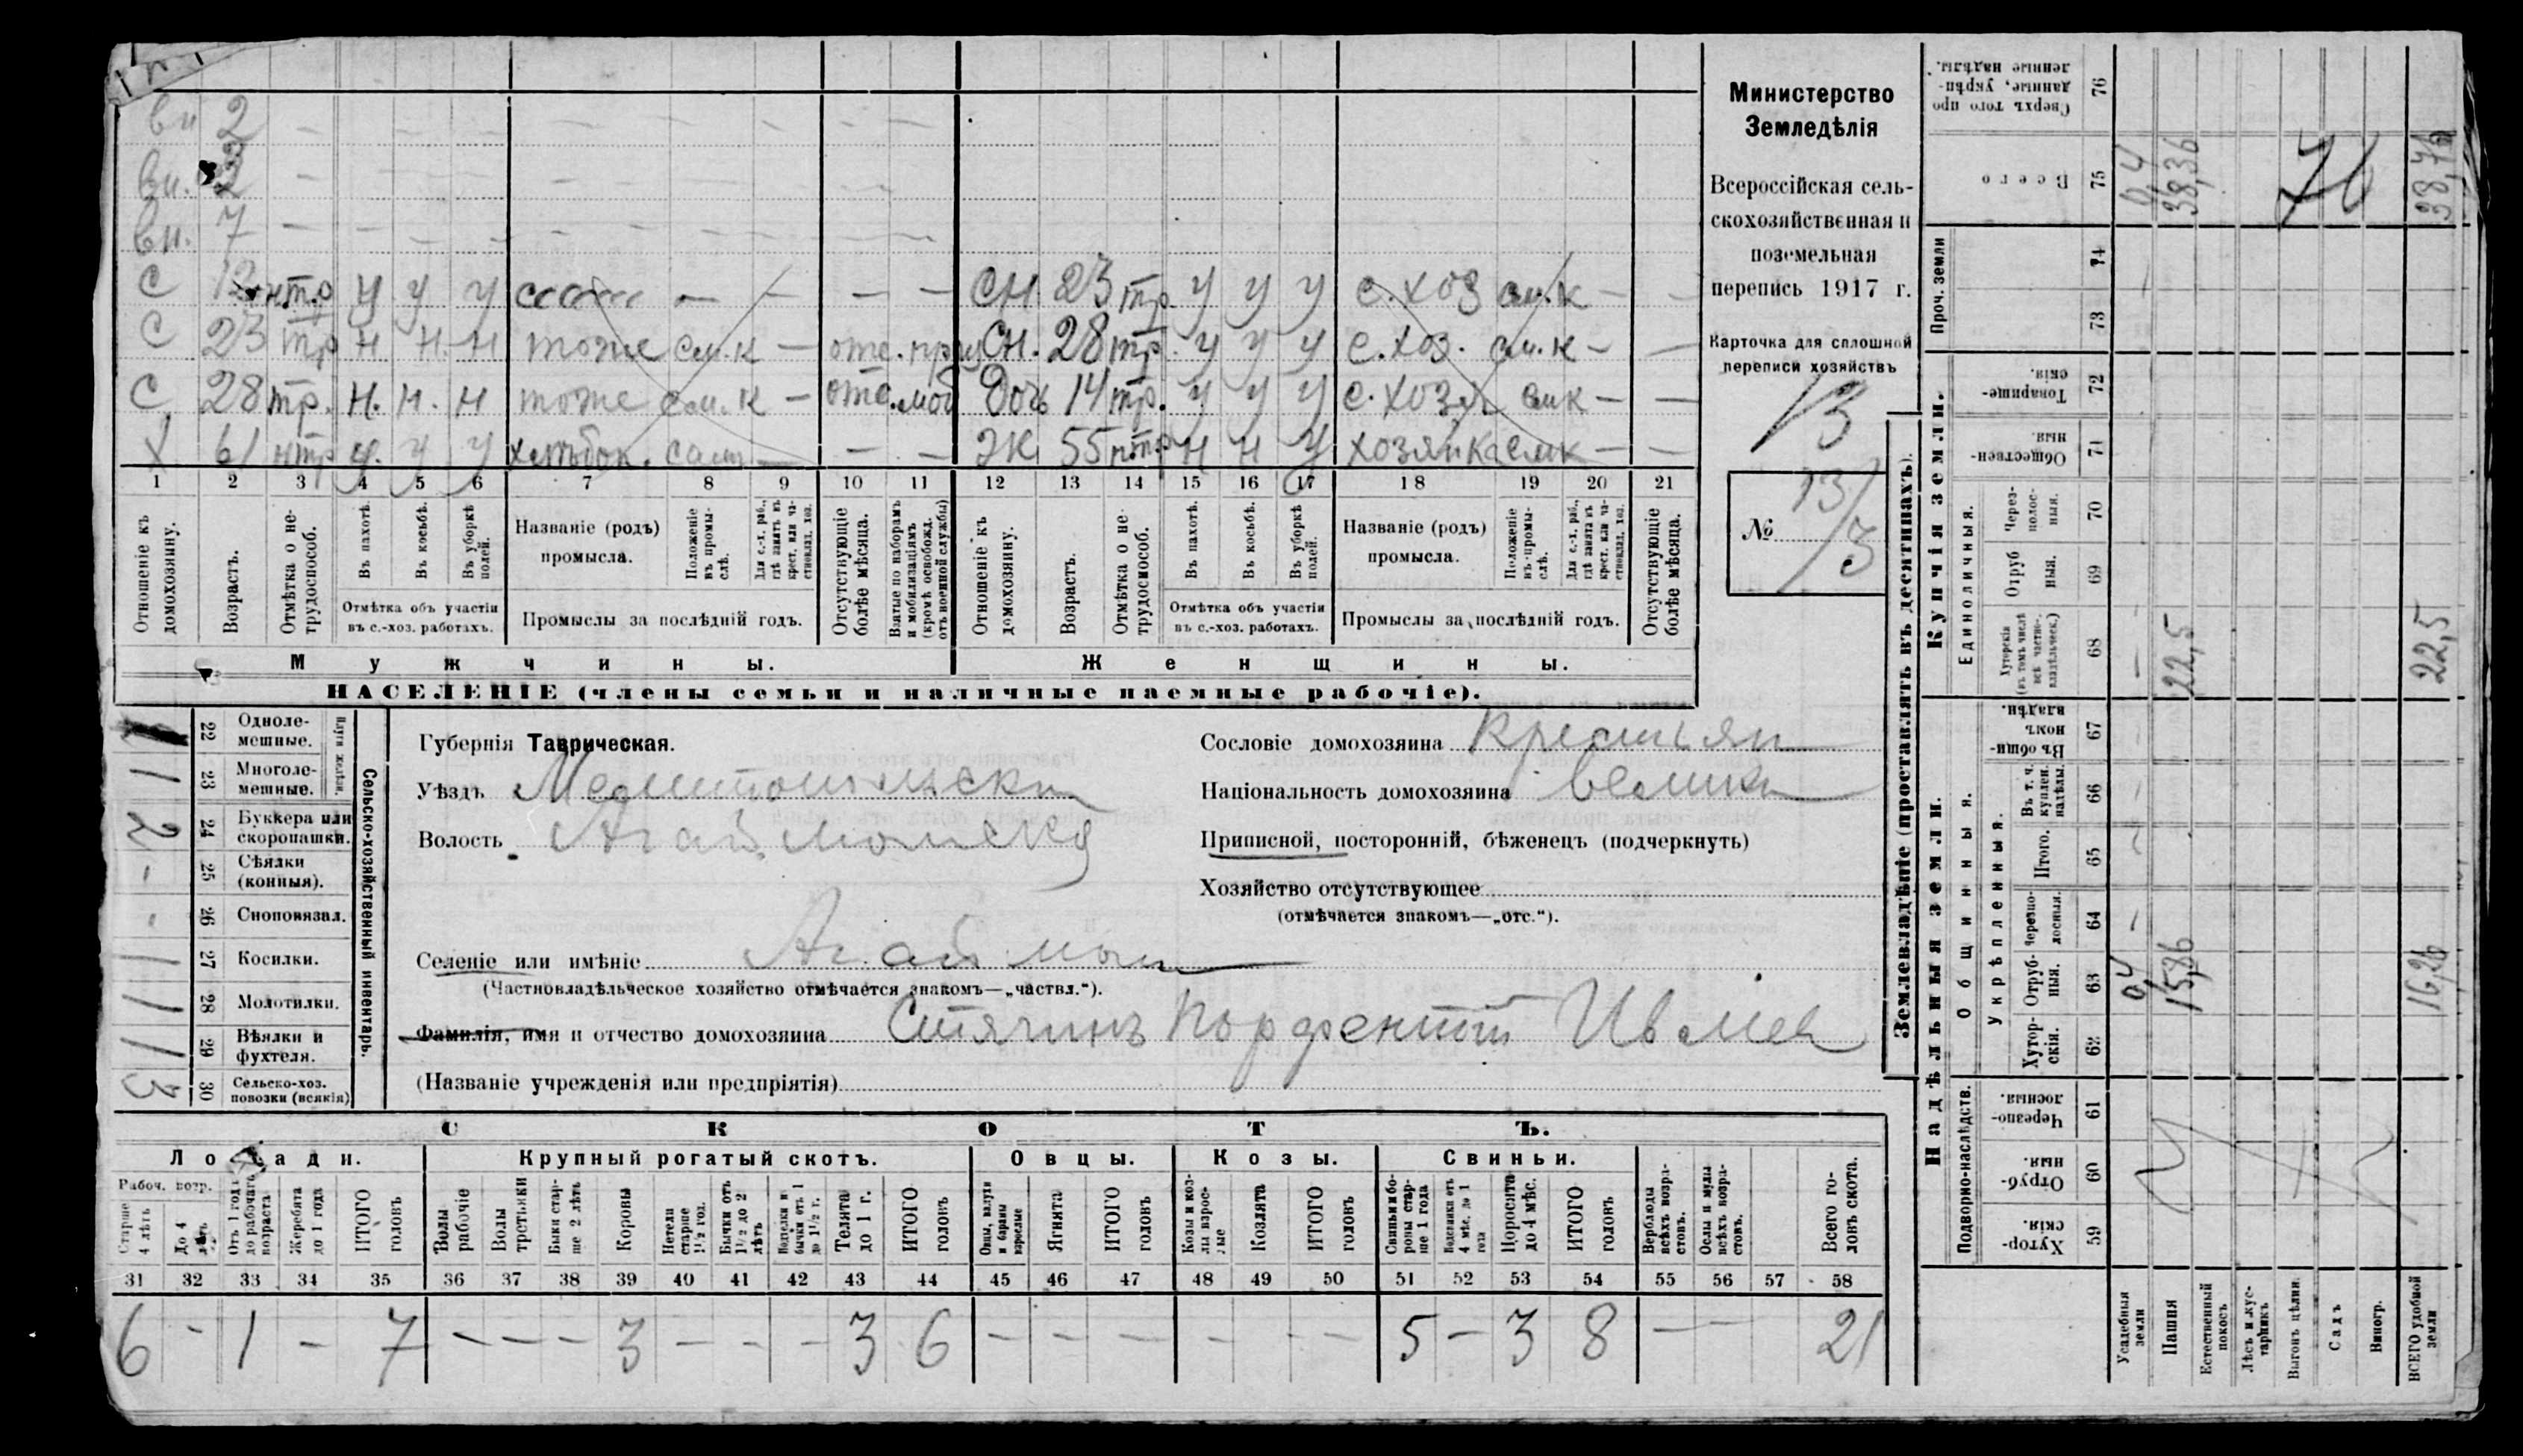 вн 2 — — — — — — — — —
вн. — — — — — — — — —
вн. 7 — — — — — — — — —
С нтр у у у — — — — СН 23 тр у у у с.хоз см.к — —
С 23 тр н н н тоже см.к — отс. СН. 28 тр. у у у с.хоз. см.к — —
С 28 тр. н. н. н тоже см.к — отс. моб дочь 14 тр. у у у с.хоз см к — —
Х 61 нтр у. у у хлѣбоп. сам — — — ЖК 55 нтр н н у хозяйка смк — —
1 2 3 4 5 6 7 8 9 10 11 12 13 14 15 16 17 18 19 20 21
Отношеніе къ домохозяину.
Возрастъ.
Отмѣтка о не-трудоспособ.
Въ пахотѣ.
Въ косьбѣ.
Въ уборкѣ полей.
Отмѣтка объ участіи въ с.-хоз. работахъ.
Названіе (родъ) промысла.
Положеніе въ промы-слѣ.
Для с.-х. раб., гдѣ занятъ въ крест. или ча-стновлад. хоз.
Промыслы за послѣдній годъ.
Отсутствующіе болѣе мѣсяца.
Взятые по наборамъ и мобилизаціямъ (кромѣ освобожд. отъ военной службы)
Отношеніе къ домохозяину.
Возрастъ.
Отмѣтка о не-трудоспособ.
Въ пахотѣ.
Въ косьбѣ.
Въ уборкѣ полей.
Отмѣтка объ участіи въ с.-хоз. работахъ.
Названіе (родъ) промысла.
Положеніе въ промы-слѣ.
Для с.-х. раб., гдѣ занята въ крест. или ча-стновлад. хоз.
Промыслы за послѣдній годъ.
Отсутствующіе болѣе мѣсяца.
Мужчины.
Женщины.
НАСЕЛЕНІЕ (члены семьи и наличные наемные рабочіе).
Министерство
Земледѣлія
Всероссійская сель-
скохозяйственная и
поземельная
перепись 1917 г.
Карточка для сплошной
переписи хозяйствъ
13
№ 13/3
Сельско-хозяйственный инвентарь.
Плуги желѣзн.
22 Одноле-мешные.
1 23 Многоле-мешные.
2 24 Буккера или скоропашки.
- 25 Сѣялки (конныя).
- 26 Сноповязал.
1 27 Косилки.
1 28 Молотилки.
1 29 Вѣялки и фухтеля.
3 30 Сельско-хоз. повозки (всякія)
Губернія Таврическая.
Уѣздъ Мелитопольскій
Волость Агайманска
Селеніе или имѣніе Агайман
(Частновладѣльческое хозяйство отмѣчается знакомъ—„частвл.“).
Фамилія, имя и отчество домохозяина Стячинъ Порфентій Ивлиев
(Названіе учрежденія или предпріятія)
Сословіе домохозяина Крестьян
Національность домохозяина велик
Приписной, посторонній, бѣженецъ (подчеркнуть)
Хозяйство отсутствующее
(отмѣчается знакомъ—„отс.“).
СКОТЪ.
Лошади. Крупный рогатый скотъ. Овцы. Козы. Свиньи.
Рабоч. возр.
Старше 4 лѣтъ
До 4 лѣтъ
Отъ 1 года до рабочаго возраста
Жеребята до 1 года
ИТОГО головъ
Волы рабочіе
Волы третьяки
Быки стар-ше 2 лѣтъ
Коровы
Нетели старше 1½ год.
Бычки отъ 1½ до 2 лѣтъ
Телки и бычки отъ 1 до 1½ г.
Телята до 1 г.
ИТОГО головъ
Овцы, валухи и бараны взрослые
Ягнята
ИТОГО головъ
Козы и коз-лы взрос-лые
Козлята
ИТОГО головъ
Свиньи и бо-ровы стар-ше 1 года
Подсвинки отъ 4 мѣс. до 1 года
Поросята до 4 мѣс.
ИТОГО головъ
Верблюды всѣхъ возра-стовъ.
Ослы и мулы всѣхъ возра-стовъ.
Всего го-ловъ скота.
31 32 33 34 35 36 37 38 39 40 41 42 43 44 45 46 47 48 49 50 51 52 53 54 55 56 57 58
6 - 1 - 7 — — — 3 — — - 3 6 — — — — - — 5 - 3 8 — — 21
Землевладѣніе (проставлять въ десятинахъ).
Надѣльныя земли.
Подворно-наслѣдств.
Хутор-скія. 59
Отруб-ныя. 60
Черезпо-лосныя. 61
Общинныя.
Укрѣпленныя.
Хутор-скія. 62
Отруб-ныя. 63 0,4 15,86 16,26
Черезпо-лосныя. 64
Итого. 65
Въ т. ч. куплен. надѣлы. 66
Въ общин-номъ владѣн. 67
Купчія земли.
Единоличныя.
Хуторскія (въ томъ числѣ всѣ частно-владѣльческ.) 68 22,5 22,5
Отруб ныя. 69
Через-полос-ныя. 70
Обществен-ныя. 71
Товарище-скія. 72
Проч. земли
73
74
Всего 75 0,4 38,36 38,76
76
Сверхъ того про данные, укрѣп-ленные надѣлы. 76
Усадебныя земли
Пашня
Естественный покосъ
Лѣсъ и кус-тарникъ
Выгонъ цѣлин.
Садъ
Виногр.
ВСЕГО удобной земли